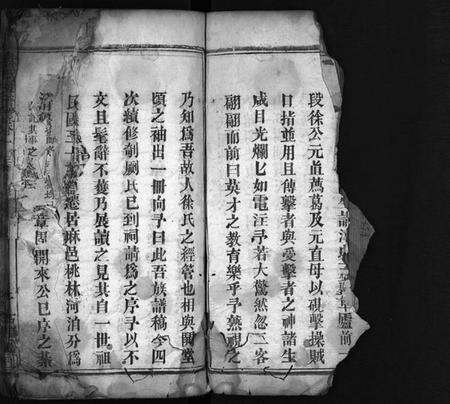 廬前一
段徐公元直薦葛及元直母以硯擊操賊
口指並用且傳擊者與受擊者之神諸生
咸目光爛匕如電汪予若大驚然忽二客
翩翩而前曰英才之教育樂乎予熟視之
乃知爲吾故人徐氏之經管也相與園堂
頃之袖出一冊向予曰此吾族譜稿今四
次續修剞劂氏已到祠請爲之序予以不
文且髦辭不獲乃展讀之見其自一世祖
遷居麻邑桃林河泊分爲
章閏開來公已序之綦